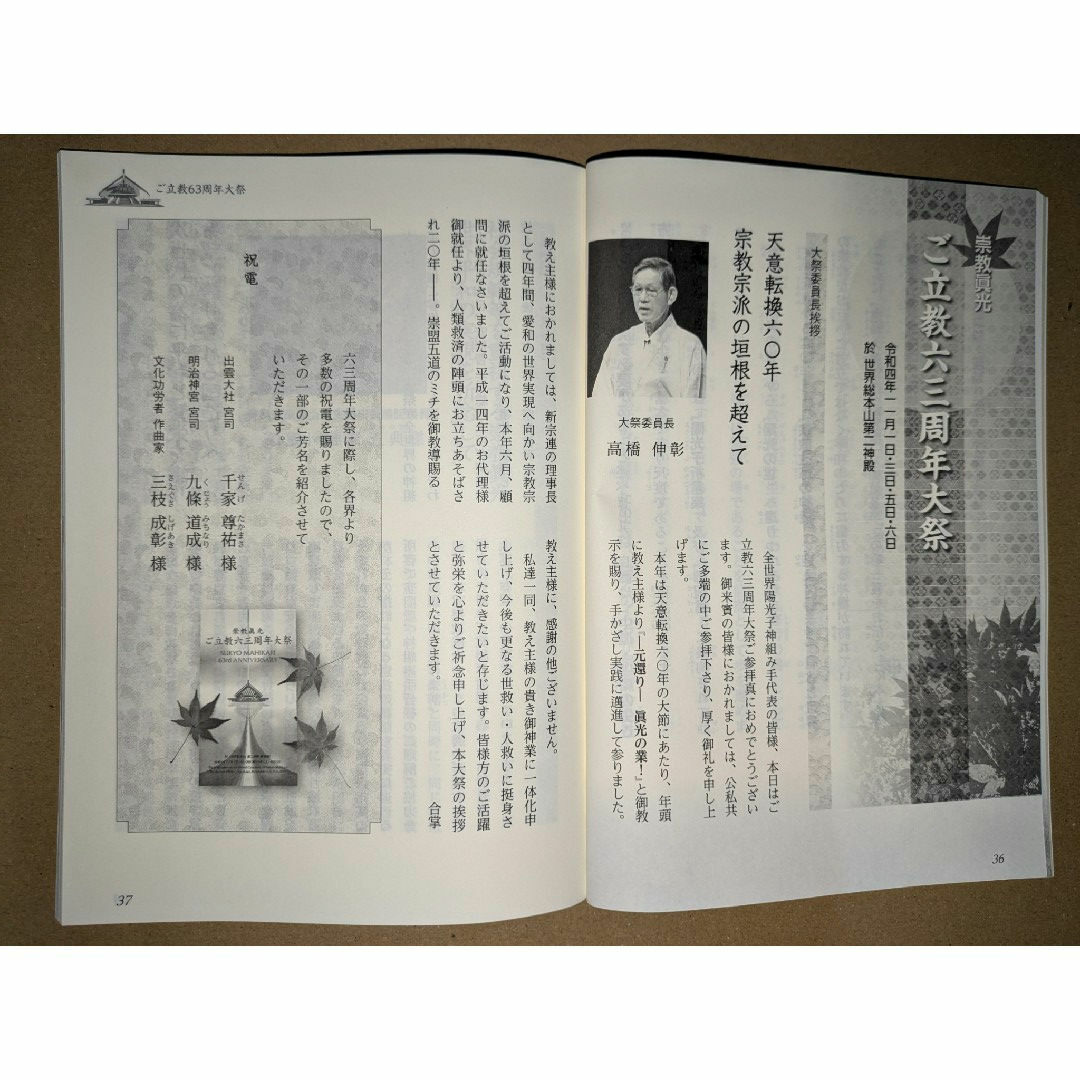 崇教眞光
ご立教六三周年大祭
令和四年一一月一日・三日・五日・六日
於 世界総本山第二神殿
大祭委員長挨拶
天意転換六〇年
宗教宗派の垣根を超えて
大祭委員長
高橋 伸彰
全世界陽光子神組み手代表の皆様、本日はご
立教六三周年大祭ご参拝真におめでとうござい
ます。御来賓の皆様におかれましては、公私共
にご多端の中ご参拝下さり、厚く御礼を申し上
げます。
本年は天意転換六〇年の大節にあたり、年頭
に教え主様より『―元還り― 眞光の業!』と御教
示を賜り、手かざし実践に邁進して参りました。
36
ご立教63周年大祭
教え主様におかれましては、新宗連の理事長
として四年間、愛和の世界実現へ向かい宗教宗
派の垣根を超えてご活動になり、本年六月、顧
問に就任なさいました。平成一四年のお代理様
御就任より、人類救済の陣頭にお立ちあそばさ
れ二〇年――。崇盟五道のミチを御教導賜る
教え主様に、感謝の他ございません。
私達一同、教え主様の貴き御神業に一体化申
し上げ、今後も更なる世救い・人救いに挺身さ
せていただきたいと存じます。皆様方のご活躍
と弥栄を心よりご祈念申し上げ、本大祭の挨拶
とさせていただきます。
合掌
祝電
六三周年大祭に際し、各界より
多数の祝電を賜りましたので、
その一部のご芳名を紹介させて
いただきます。
出雲大社 宮司 千家 尊祐 様
せんげ たかまさ
明治神宮 宮司 九條 道成 様
くじょう みちなり
文化功労者 作曲家 三枝 成彰 様
さえぐさ しげあき
崇教眞光
ご立教六三周年大祭
SUKYO MAHIKARI
63rd ANNIVERSARY
37